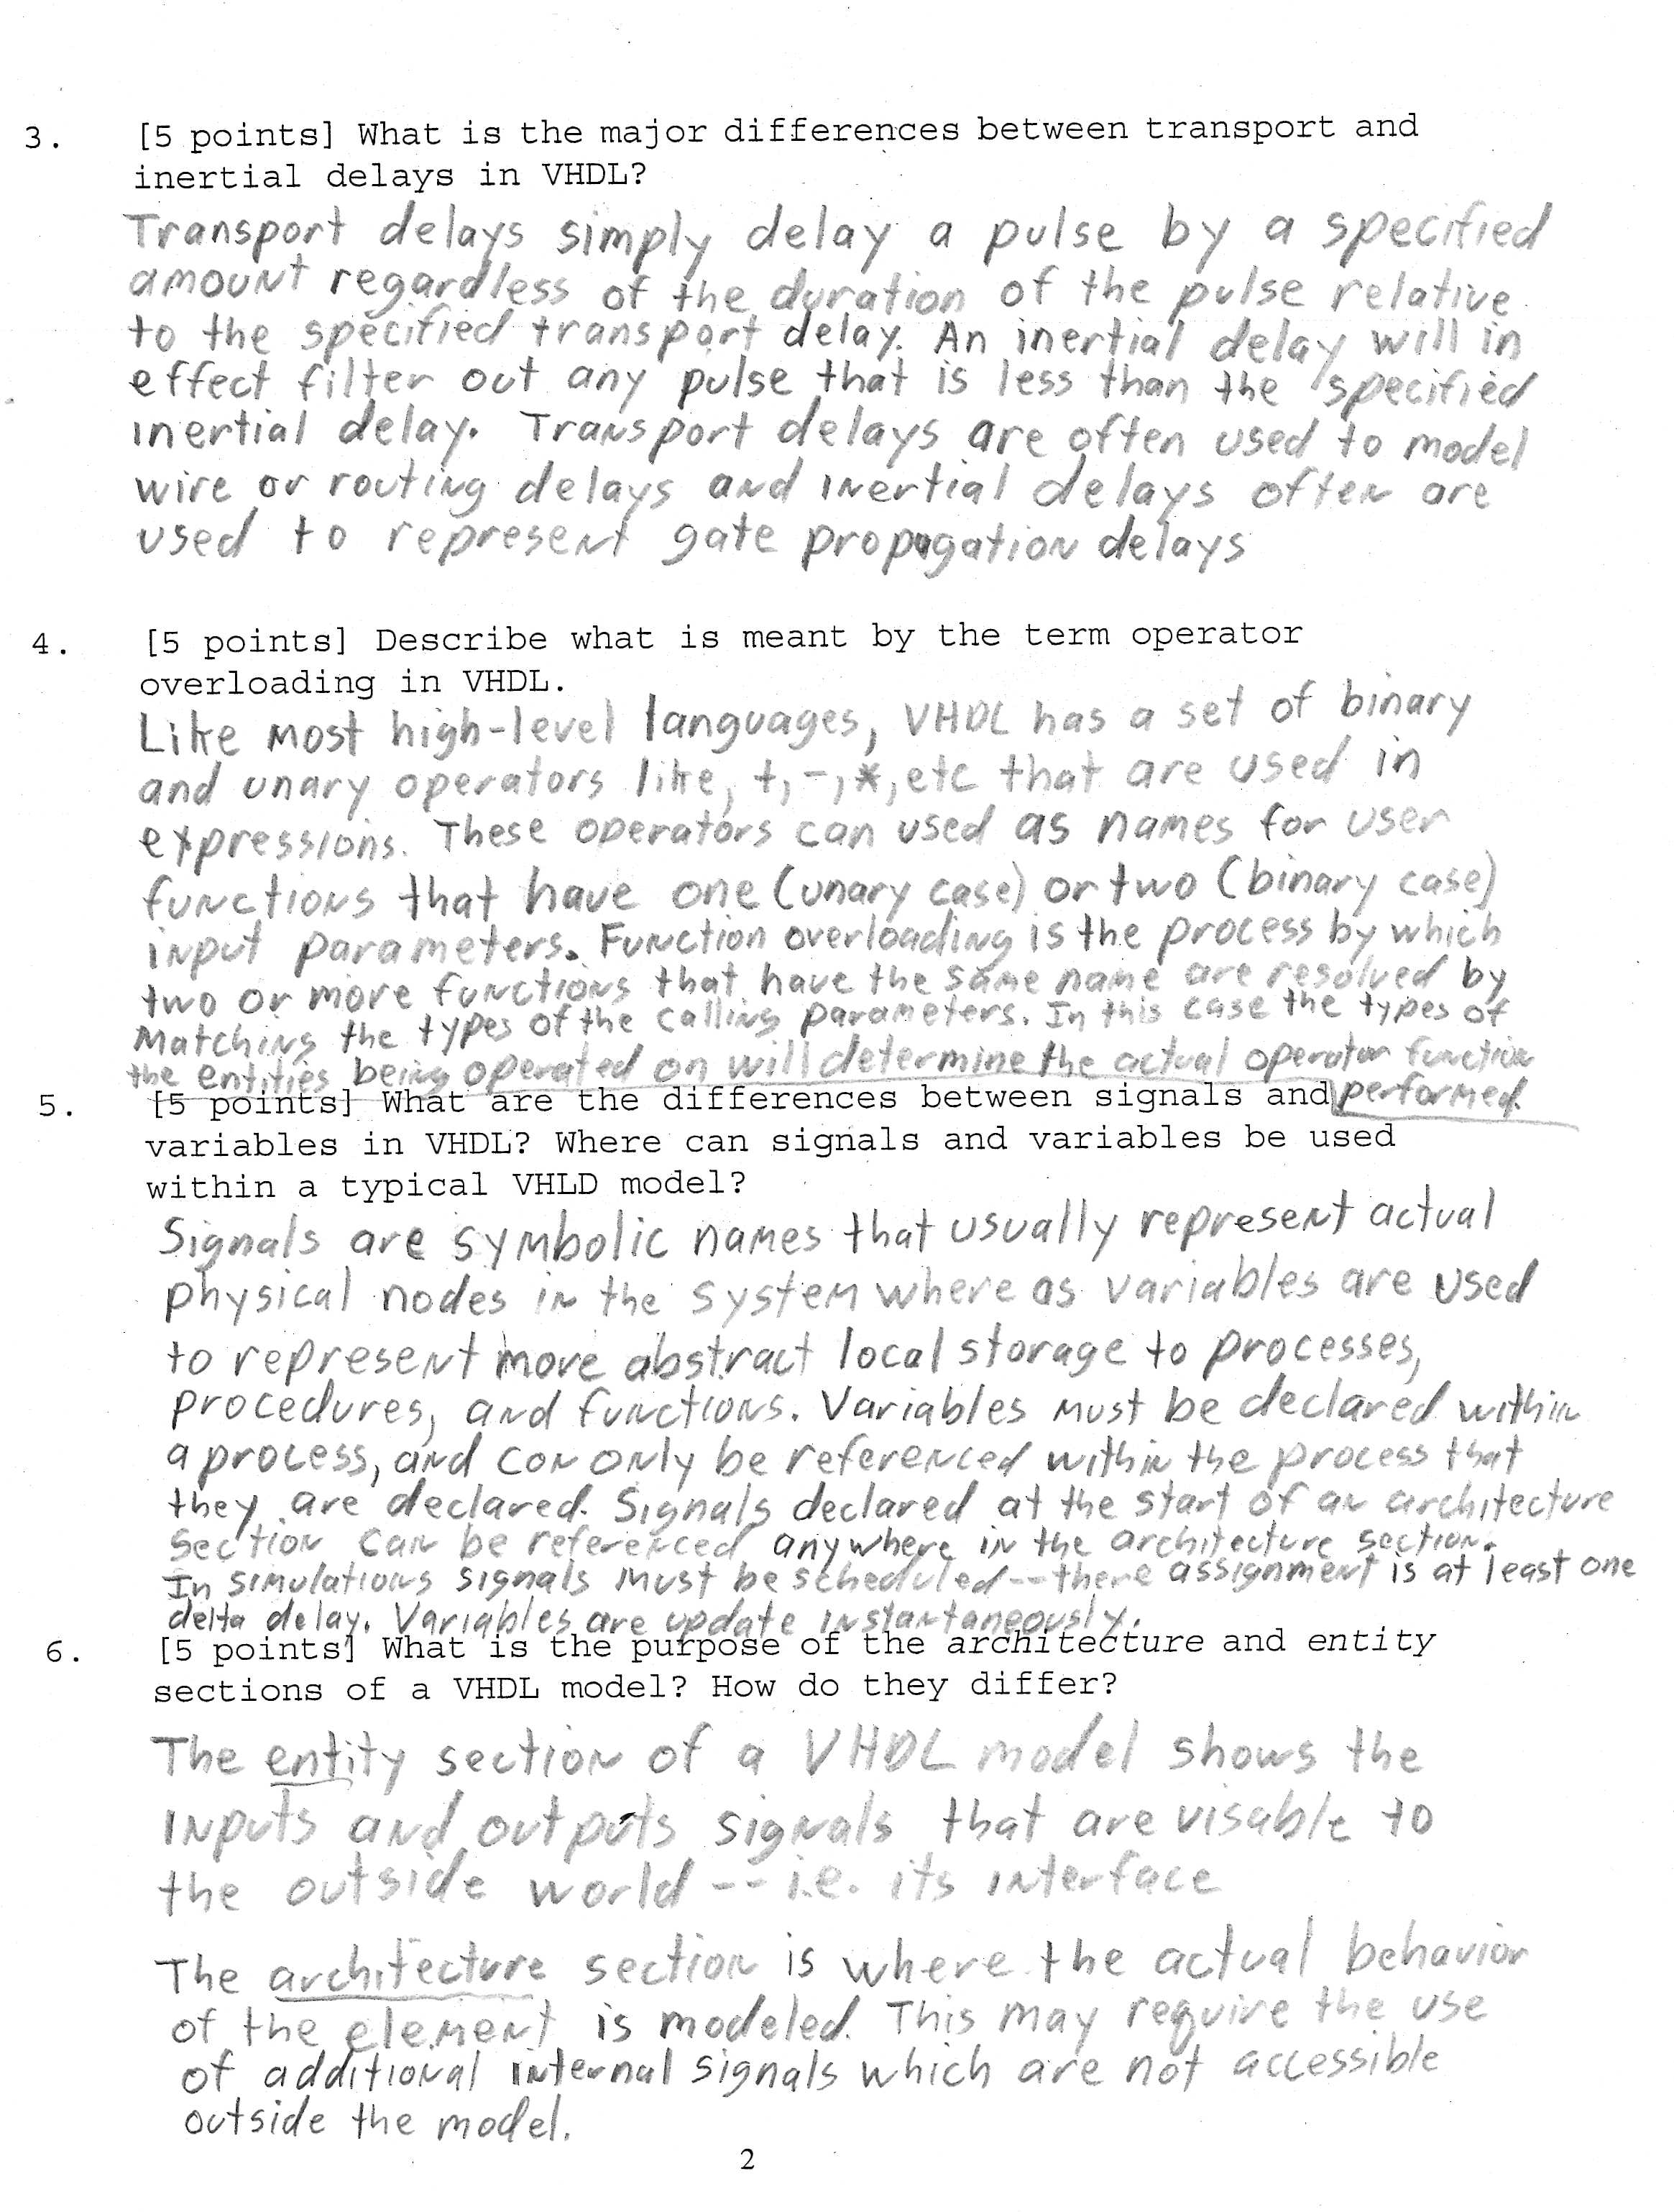 3. [5 points] What is the major differences between transport and
inertial delays in VHDL?
Transport delays simply delay a pulse by a specified
amount regardless of the duration of the pulse relative
to the specified transport delay. An inertial delay will in
effect filter out any pulse that is less than the specified
inertial delay. Transport delays are often used to model
wire or routing delays and inertial delays often are
used to represent gate propogation delays
4. [5 points] Describe what is meant by the term operator
overloading in VHDL.
Like most high-level languages, VHDL has a set of binary
and unary operators like, +, -, *, etc that are used in
expressions. These operators can used as names for user
functions that have one (unary case) or two (binary case)
input parameters. Function overloading is the process by which
two or more functions that have the same name are resolved by
Matching the types of the calling parameters. In this case the types of
the entities being operated on will determine the actual operator function
performed.
5. [5 points] What are the differences between signals and
variables in VHDL? Where can signals and variables be used
within a typical VHLD model?
Signals are symbolic names that usually represent actual
physical nodes in the system where as variables are used
to represent more abstract local storage to processes,
procedures, and functions. Variables must be declared within
a process, and can only be referenced within the process that
they are declared. Signals declared at the start of an architecture
section can be referenced anywhere in the architecture section.
In simulations signals must be scheduled -- there assignment is at least one
delta delay. Variables are update instantaneously.
6. [5 points] What is the purpose of the architecture and entity
sections of a VHDL model? How do they differ?
The entity section of a VHDL model shows the
inputs and outputs signals that are visable to
the outside world -- i.e. its interface
The architecture section is where the actual behavior
of the element is modeled. This may require the use
of additional internal signals which are not accessible
outside the model.
2